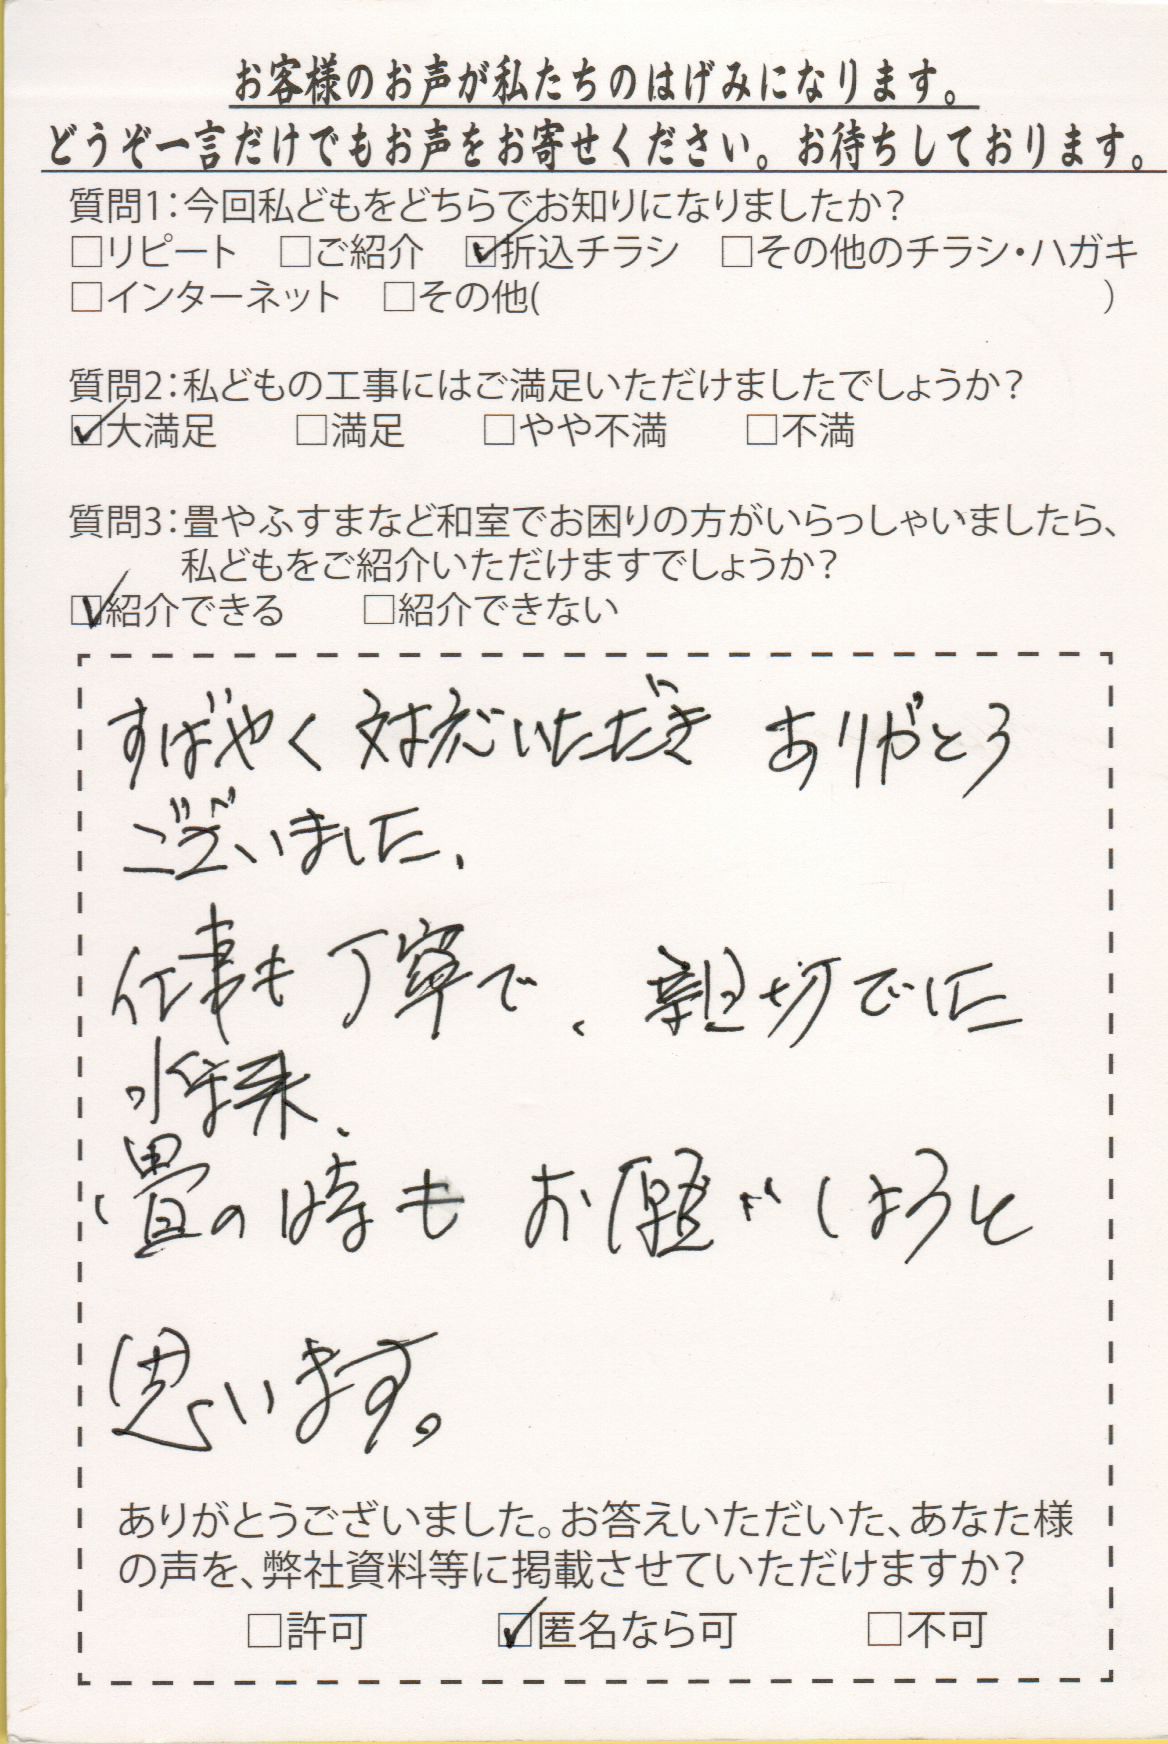 お客様のお声が私たちのはげみになります。
どうぞ一言だけでもお声をお寄せください。お待ちしております。
質問1：今回私どもをどちらでお知りになりましたか？
□リピート　□ご紹介　☑折込チラシ　□その他のチラシ・ハガキ
□インターネット　□その他(　　　　　　　　　　)
質問2：私どもの工事にはご満足いただけましたでしょうか？
☑大満足　□満足　□やや不満　□不満
質問3：畳やふすまなど和室でお困りの方がいらっしゃいましたら、
私どもをご紹介いただけますでしょうか？
☑紹介できる　□紹介できない
すばやく対応いただき ありがとう
ございました、
仕事も丁寧で、親切でした
将来、
畳の時も お願いしようと
思います。
ありがとうございました。お答えいただいた、あなた様
の声を、弊社資料等に掲載させていただけますか？
□許可　☑匿名なら可　□不可